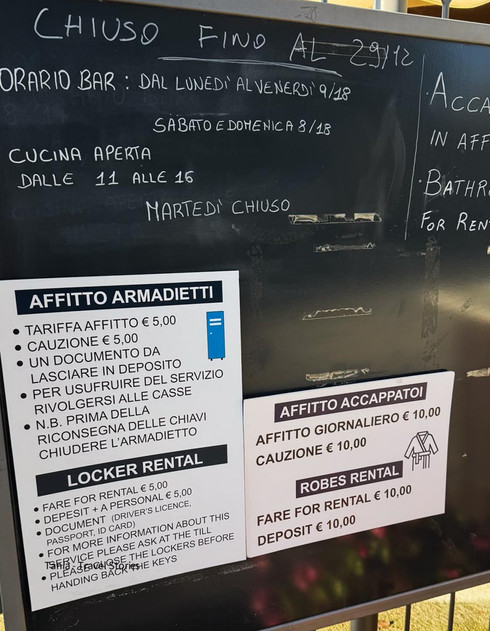 CHIUSO FINO AL 29/12
ORARIO BAR : DAL LUNEDI' AL VENERDI' 9/18
SABATO E DOMENICA 8/18
CUCINA APERTA
DALLE 11 ALLE 16
MARTEDI' CHIUSO
· ACCA
IN AFF
· BATHR
FOR REN
AFFITTO ARMADIETTI
• TARIFFA AFFITTO € 5,00
• CAUZIONE € 5,00
• UN DOCUMENTO DA
LASCIARE IN DEPOSITO
• PER USUFRUIRE DEL SERVIZIO
RIVOLGERSI ALLE CASSE
• N.B. PRIMA DELLA
RICONSEGNA DELLE CHIAVI
CHIUDERE L'ARMADIETTO
LOCKER RENTAL
• FARE FOR RENTAL € 5,00
• DEPOSIT + A PERSONAL € 5,00
• DOCUMENT (DRIVER'S LICENCE,
PASSPORT, ID CARD)
• FOR MORE INFORMATION ABOUT THIS
SERVICE PLEASE ASK AT THE TILL
• PLEASE CLOSE THE LOCKERS BEFORE
HANDING BACK THE KEYS
AFFITTO ACCAPPATOI
AFFITTO GIORNALIERO € 10,00
CAUZIONE € 10,00
ROBES RENTAL
FARE FOR RENTAL € 10,00
DEPOSIT € 10,00
Travel Stories